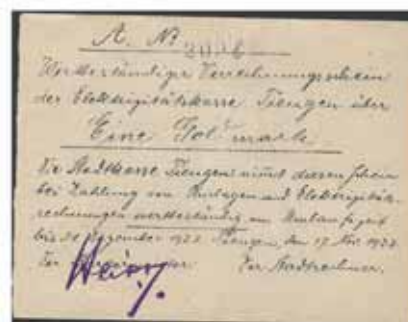 A. Nr. 3026
Wertbeständiger Verrechnungsschein
der Elektrizitätskasse Tiengen über
Eine Goldmark.
Die Stadtkasse Tiengen nimmt diesen Schein
bei Zahlung von Umlagen und Elektrizitäts-
rechnungen wertbeständig an. Umlaufszeit
bis 31 Dezember 1923. Tiengen, den 17. Nov. 1923.
Der Der Stadtrechner.